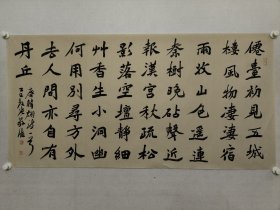 僊臺初見五城
樓風物淒淒宿
雨收山色遥連
秦樹晚砧聲近
報漢宫秋疏松
影落空壇静細
艸香生小洞幽
何用别尋方外
去人間亦自有
丹丘
唐韓翃詩一首